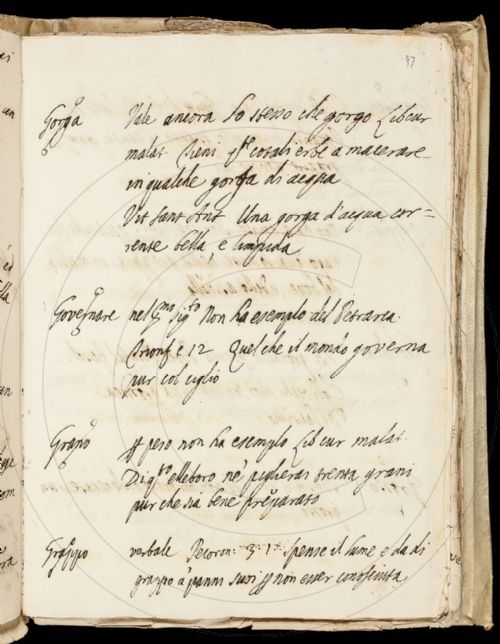 97
Gorga Vale ancora lo stesso che gorgo Lib cur
malat Tieni q.te cotali erbe a macerare
in qualche gorga di acqua
Vit Sant Ant Una gorga d'acqua cor=
rente bella, e limpida
Governare nel pmo sigto Non ha esempio del Petrarca.
Trionf c 12 Quel che il mondo governa
pur col ciglio
Grano p peso non ha esempio Lib cur malat.
Di qto elleboro ne piglierai trenta grani
pur che sia bene preparato
Grappo verbale Pecoron: 3. 1. Spense il lume e da di
grappo a panni suoi p non esser conosciuta